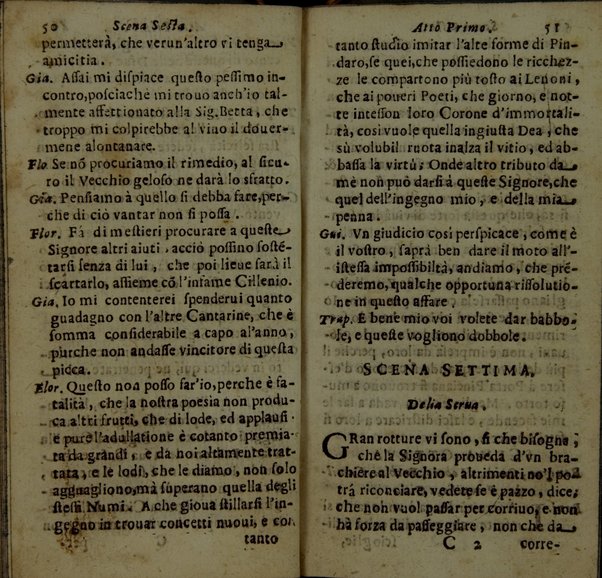 50 Scena Sesta.
permetterà, che verun'altro vi tenga
amicitia.
Gia. Assai mi dispiace questo pessimo in-
contro, posciache mi trouo anch'io tal-
mente affettionato alla Sig. Betta, che
troppo mi colpirebbe al viuo il douer-
mene alontanare.
Flo Se nō procuriamo il rimedio, al sicu-
ro il Vecchio geloso ne darà lo sfratto.
Gia. Pensiamo à quello si debba fare, per-
che di ciò vantar non si possa.
Flor. Fà di mestieri procurare a queste
Signore altri aiuti, acciò possino sostē-
tarsi senza di lui, che poi lieue sarà il
scartarlo, assieme cō l'infame Cillenio.
Gia. Io mi contenterei spenderui quanto
guadagno con l'altre Cantarine, che è
somma considerabile a capo al'anno,
purche non andasse vincitore di questa
picca.
Flor. Questo non posso far'io, perche è fa-
talità, che la nostra poesia non produ-
ca altri frutti, che di lode, ed applausi
e pure l'adullatione è cotanto premia-
ta da grandi, e da noi altamente trat-
tata, e le lodi, che le diamo, non solo
agguagliono, mà superano quella degli
stessi Numi. A che gioua stillarsi l'in-
gegno in trouar concetti nuoui, e con
tanto
Atto Primo. 51
tanto studio imitar l'alte forme di Pin-
daro, se quei, che possiedono le ricchez-
ze le compartono più tosto ai Lenoni,
che ai poueri Poeti, che giorno, e not-
te intesson loro Corone d'immortali-
tà, così vuole quella ingiusta Dea, che
sù volubil ruota inalza il vitio, ed ab-
bassa la virtù; Onde altro tributo da
mè non può darsi à queste Signore, che
quel dell'ingegno mio, e della mia
penna.
Gui. Vn giudicio così perspicace, come è
il vostro, saprà ben dare il moto all'-
istessa impossibiltà, andiamo, che prē-
deremo, qualche opportuna rissolutio-
ne in questo affare.
Trap. E bene mio voi volete dar babbo-
le, e queste vogliono dobbole.
SCENA SETTIMA.
Delia Serua.
GRan rotture vi sono, sì che bisogna,
che la Signora proueda d'vn bra-
chiere al Vecchio, altrimenti no'l po-
trà riconciare, vedete se è pazzo, dice,
che non vuol passar per corriuo, e non
hà forza da passeggiare, non che da
C 2 corre-